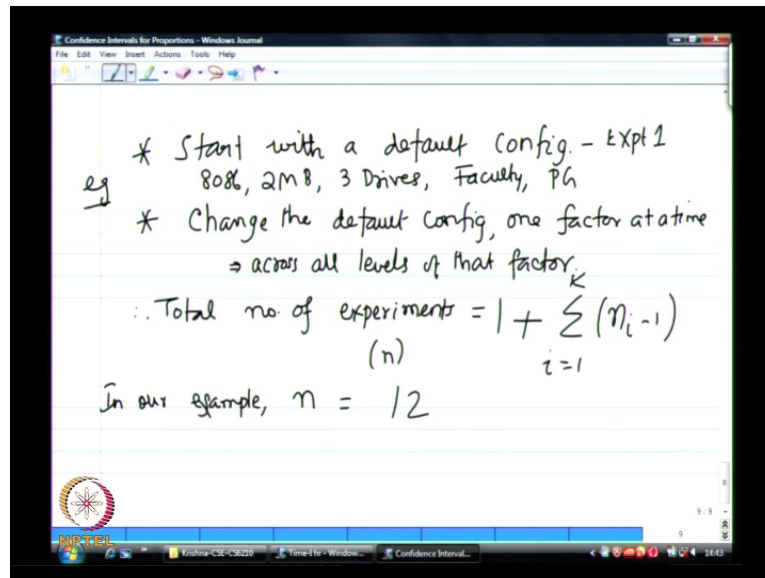 Confidence Intervals for Proportions - Windows Journal
File Edit View Insert Actions Tools Help
* Start with a default config. - Expt 1
eg 8086, 2MB, 3 Drives, Faculty, PG
* Change the default config, one factor at a time
⇒ across all levels of that factor.
∴ Total no. of experiments = 1 + K Σ i=1 (n_i - 1)
(n)
In our example, n = 12
9 / 9
9
NPTEL
Krishna-CSE-CS6210 Time-1hr - Window... Confidence Interval... 14:43